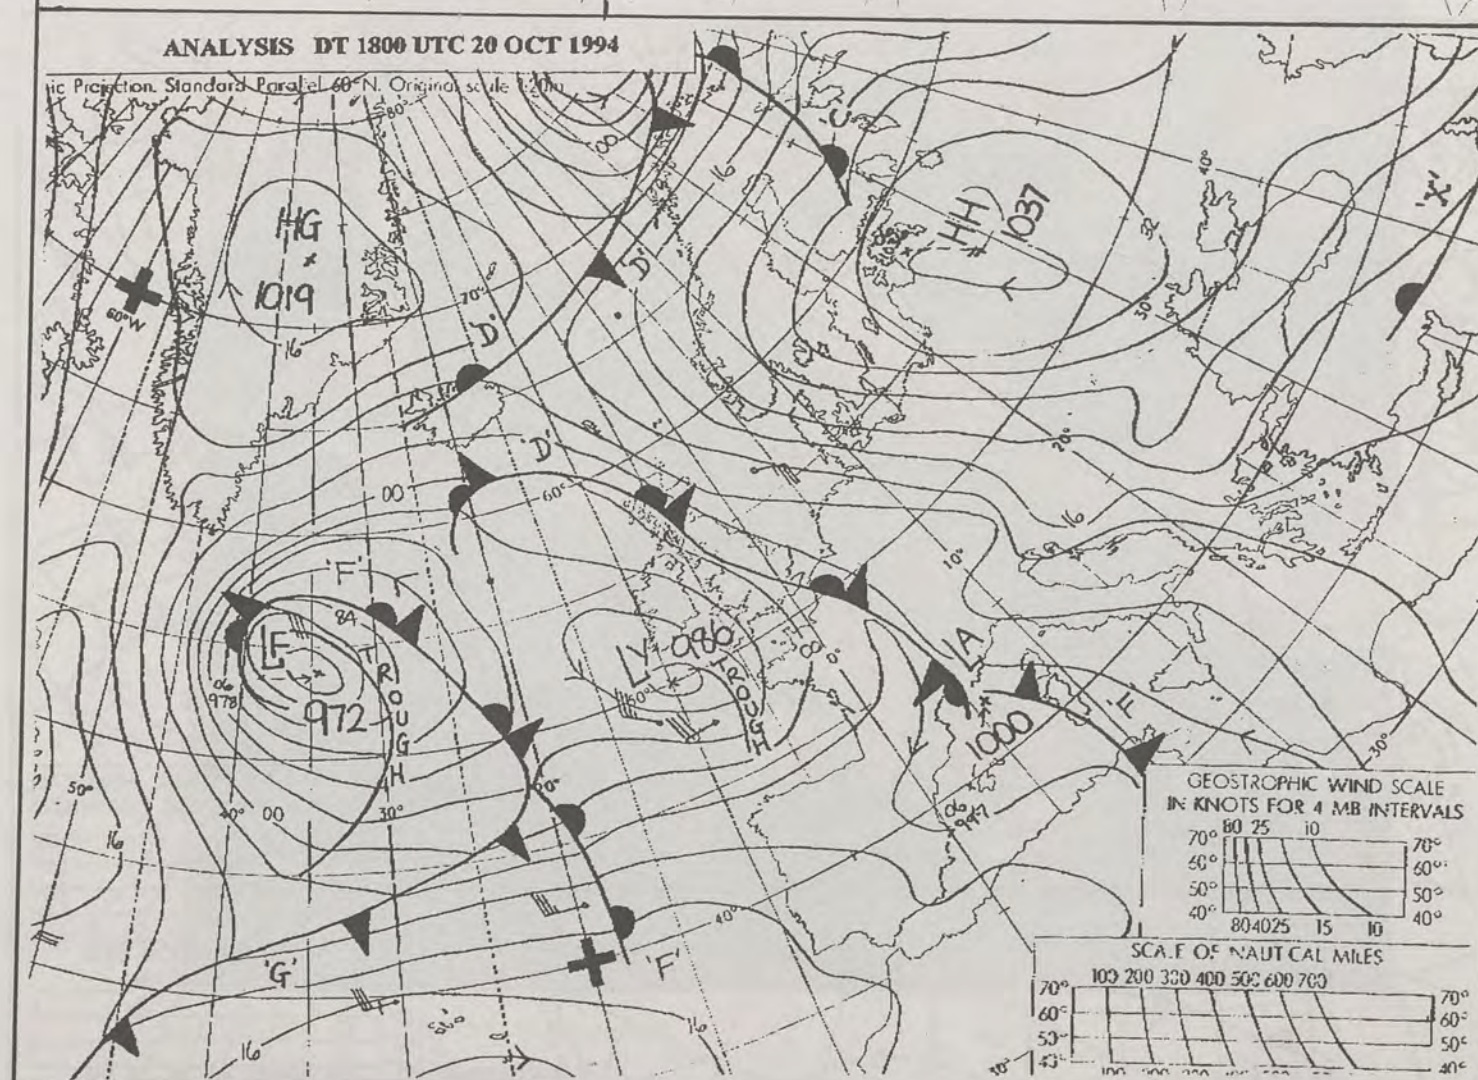 ANALYSIS DT 1800 UTC 20 OCT 1994
ic Projection. Standard Parallel 60°N. Original scale 1:20m
80°
00
'C'
40°
'X'
16
HG
1019
60°W
16
70°
'D'
'D'
HH
1037
32
30°
20°
'D'
00
60°
16
10°
'F'
84
LF
978
972
TROUGH
LY 986
50°
TROUGH
00
0°
LA
1000
997
'F'
30°
50°
16
40°
00
30°
20°
40°
'G'
'F'
16
16
30°
GEOSTROPHIC WIND SCALE
IN KNOTS FOR 4 MB INTERVALS
80 25 10
70° 70°
60° 60°
50° 50°
40° 40°
80 40 25 15 10
SCALE OF NAUTICAL MILES
100 200 300 400 500 600 700
70° 70°
60° 60°
50° 50°
40° 40°